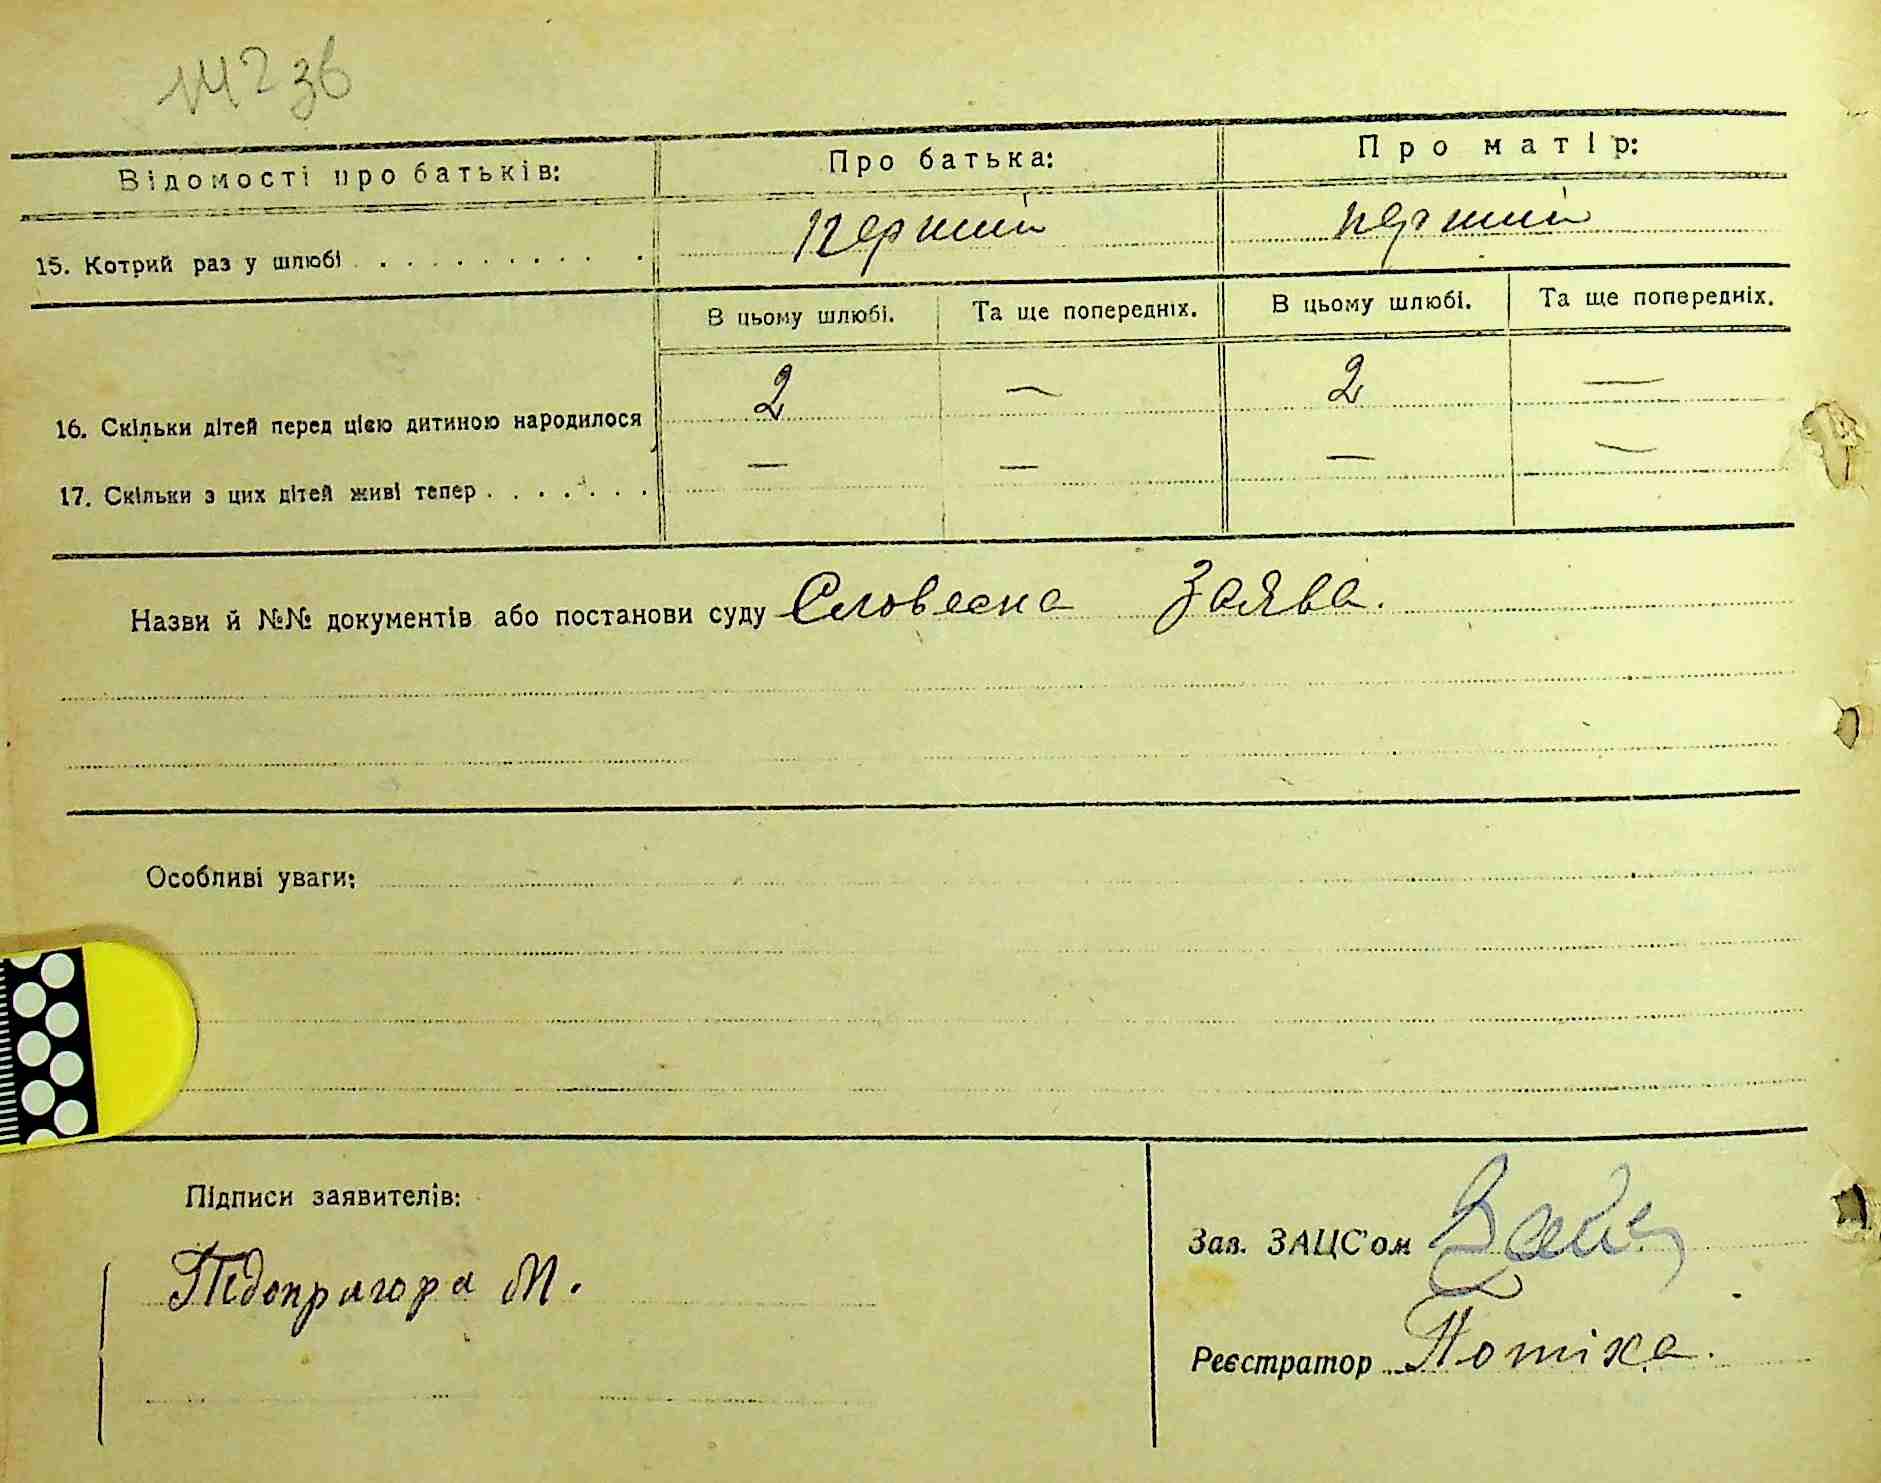 142 зв
Відомості про батьків: Про батька: Про матір:
15. Котрий раз у шлюбі . . . . . . . . . . перший перший
В цьому шлюбі. Та ще попередніх. В цьому шлюбі. Та ще попередніх.
16. Скільки дітей перед цією дитиною народилося 2 — 2 —
17. Скільки з цих дітей живі тепер . . . . . . . — — — —
Назви й №№ документів або постанови суду Словесна Заява.
Особливі уваги:
Підписи заявителів:
Зав. ЗАЦС'ом
Підопригора М.
Реєстратор Потіха.